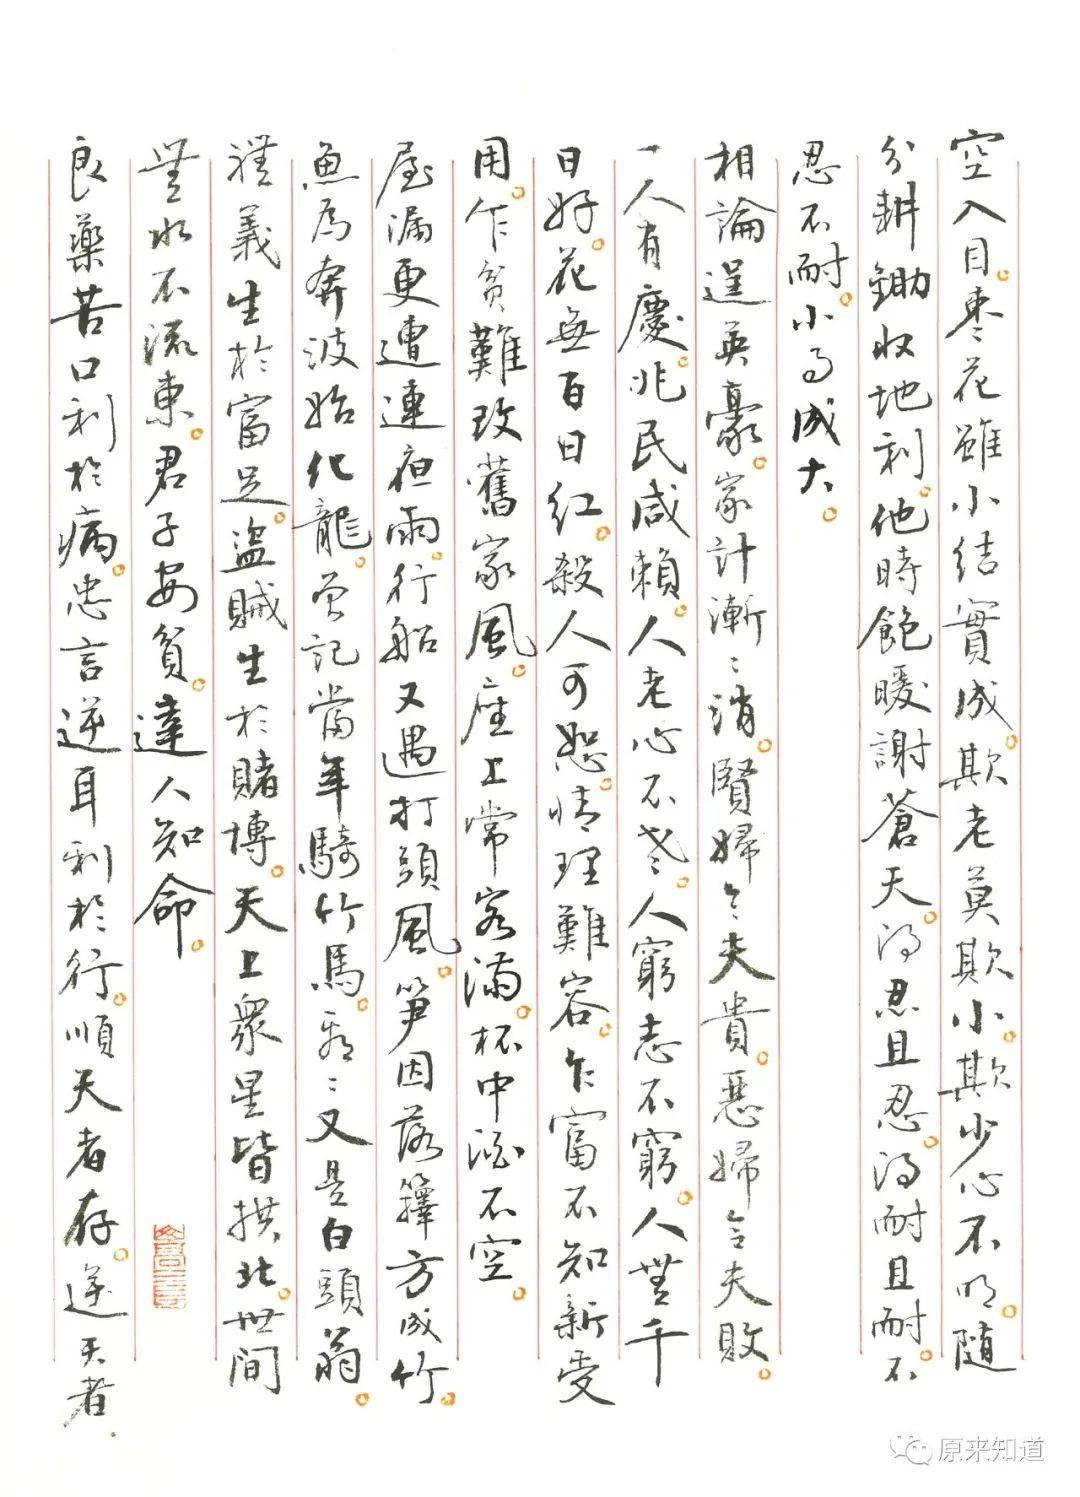 空入目。枣花雖小結實成。欺老莫欺小。欺少心不明。随
分耕鋤收地利。他時飽暖謝蒼天。得忍且忍。得耐且耐。不
忍不耐。小事成大。
相論逞英豪。家計漸〻消。賢婦令夫貴。惡婦令夫敗。
一人有慶。兆民咸賴。人老心不老。人窮志不窮。人無千
日好。花無百日紅。殺人可恕。情理難容。乍富不知新受
用。乍貧難改舊家風。座上常客滿。杯中酒不空。
屋漏更遭連夜雨。行船又遇打頭風。笋因落籜方成竹。
魚為奔波始化龍。曾記當年騎竹馬。看〻又是白頭翁。
禮義生於富足。盜賊生於賭博。天上眾星皆拱北。世間
無水不流東。君子安貧。達人知命。
良藥苦口利於病。忠言逆耳利於行。順天者存。逆天者
原来知道